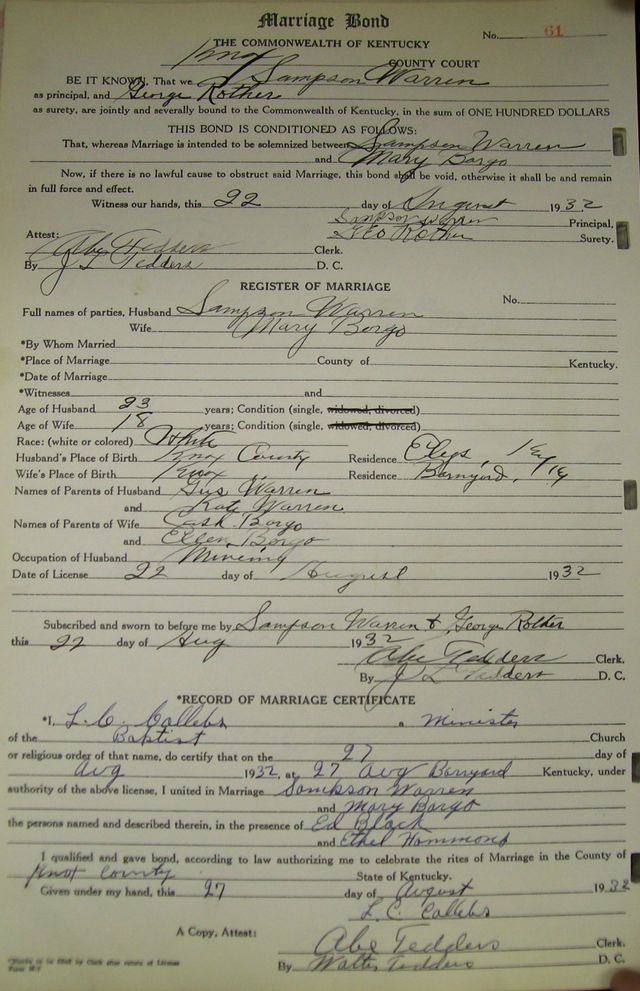 Marriage Bond
No. 61
THE COMMONWEALTH OF KENTUCKY
Knox COUNTY COURT
BE IT KNOWN, That we Sampson Warren
as principal, and George Rother
as surety, are jointly and severally bound to the Commonwealth of Kentucky, in the sum of ONE HUNDRED DOLLARS
THIS BOND IS CONDITIONED AS FOLLOWS:
That, whereas Marriage is intended to be solemnized between Sampson Warren
and Mary Borgo
Now, if there is no lawful cause to obstruct said Marriage, this bond shall be void, otherwise it shall be and remain
in full force and effect.
Witness our hands, this 22 day of August 1932
Sampson Warren Principal,
Geo Rother Surety.
Attest:
Abe Tedders Clerk.
By J L Tedders D. C.
REGISTER OF MARRIAGE
No.
Full names of parties, Husband Sampson Warren
Wife Mary Borgo
*By Whom Married
*Place of Marriage County of Kentucky.
*Date of Marriage
*Witnesses and
Age of Husband 23 years; Condition (single, widowed, divorced)
Age of Wife 18 years; Condition (single, widowed, divorced)
Race: (white or colored) White
Husband's Place of Birth Knox County Residence Elys, Ky
Wife's Place of Birth Knox Residence Barnyard, Ky
Names of Parents of Husband Gus Warren
and Kate Warren
Names of Parents of Wife Cash Borgo
and Ellen Borgo
Occupation of Husband Mineing
Date of License 22 day of August 1932
Subscribed and sworn to before me by Sampson Warren & George Rother
this 22 day of Aug 1932
Abe Tedders Clerk.
By J L Tedders D. C.
*RECORD OF MARRIAGE CERTIFICATE
*I, L.C. Collebs a Minister
of the Baptist Church
or religious order of that name, do certify that on the 27 day of
Aug 1932, at 27 Aug Barnyard Kentucky, under
authority of the above license, I united in Marriage Sampson Warren
and Mary Borgo
the persons named and described therein, in the presence of Ed Black
and Ethel Hammons
I qualified and gave bond, according to law authorizing me to celebrate the rites of Marriage in the County of
Knox County State of Kentucky.
Given under my hand, this 27 day of August 1932
L.C. Collebs
A Copy, Attest:
Abe Tedders Clerk.
By Walter Tedders D. C.